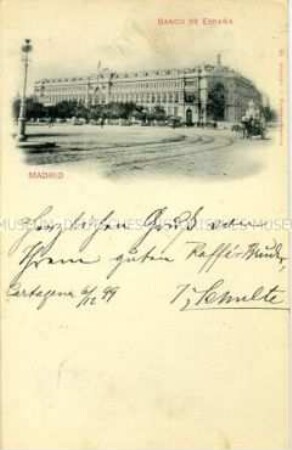 BANCO DE ESPAÑA
MADRID
Herzlichen Gruß von
Ihrem guten Kaffé-Bruder,
Cartagena 6/12 99
Schulte